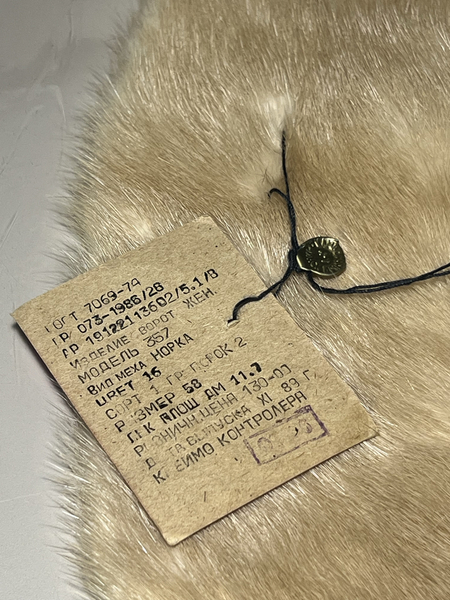 ГОСТ 7069-74
ПР 073-1986/28
АР 19122113602/5.1/8
ИЗДЕЛИЕ ВОРОТ ЖЕН.
МОДЕЛЬ 357
ВИД МЕХА НОРКА
ЦВЕТ 16
СОРТ 1 ГР. ПОРОК 2
РАЗМЕР 58
ПЛОЩ ДМ 11.7
РОЗНИЧН.ЦЕНА 130-00
ДАТА ВЫПУСКА XI 89 Г.
КЛЕЙМО КОНТРОЛЕРА